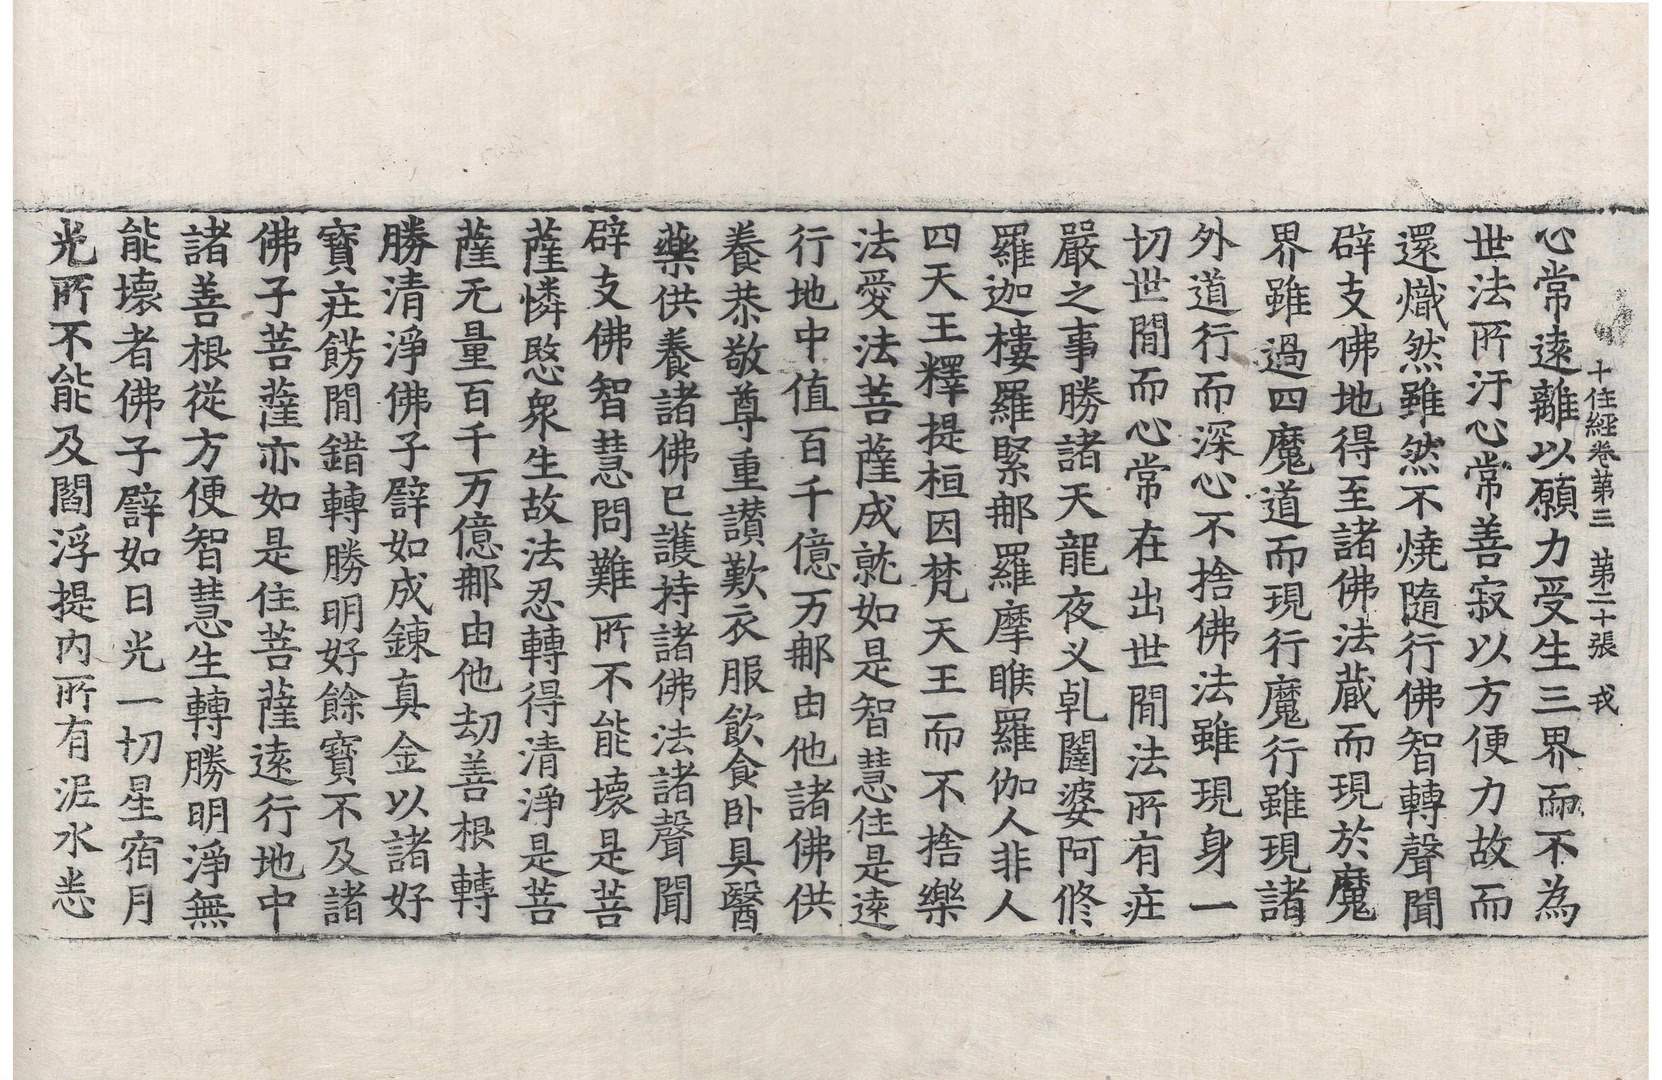 十住經卷苐三　苐二十張　戎
心常遠離以願力受生三界而不為
世法所汙心常善寂以方便力故而
還熾然雖然不燒隨行佛智轉聲聞
辟支佛地得至諸佛法藏而現於魔
界雖過四魔道而現行魔行雖現諸
外道行而深心不捨佛法雖現身一
切世閒而心常在出世閒法所有庄
嚴之事勝諸天龍夜叉乹闥婆阿脩
羅迦樓羅緊那羅摩睺羅伽人非人
四天王釋提桓因梵天王而不捨樂
法愛法菩薩成就如是智慧住是遠
行地中值百千億万那由他諸佛供
養恭敬尊重讃歎衣服飲食卧具醫
藥供養諸佛已護持諸佛法諸聲聞
辟支佛智慧問難所不能壞是菩
薩憐愍衆生故法忍轉得清淨是菩
薩无量百千万億那由他劫善根轉
勝清淨佛子譬如成鍊真金以諸好
寳庄餝閒錯轉勝明好餘寳不及諸
佛子菩薩亦如是住菩薩遠行地中
諸善根從方便智慧生轉勝明淨無
能壞者佛子譬如日光一切星宿月
光所不能及閻浮提内所有泥水悉